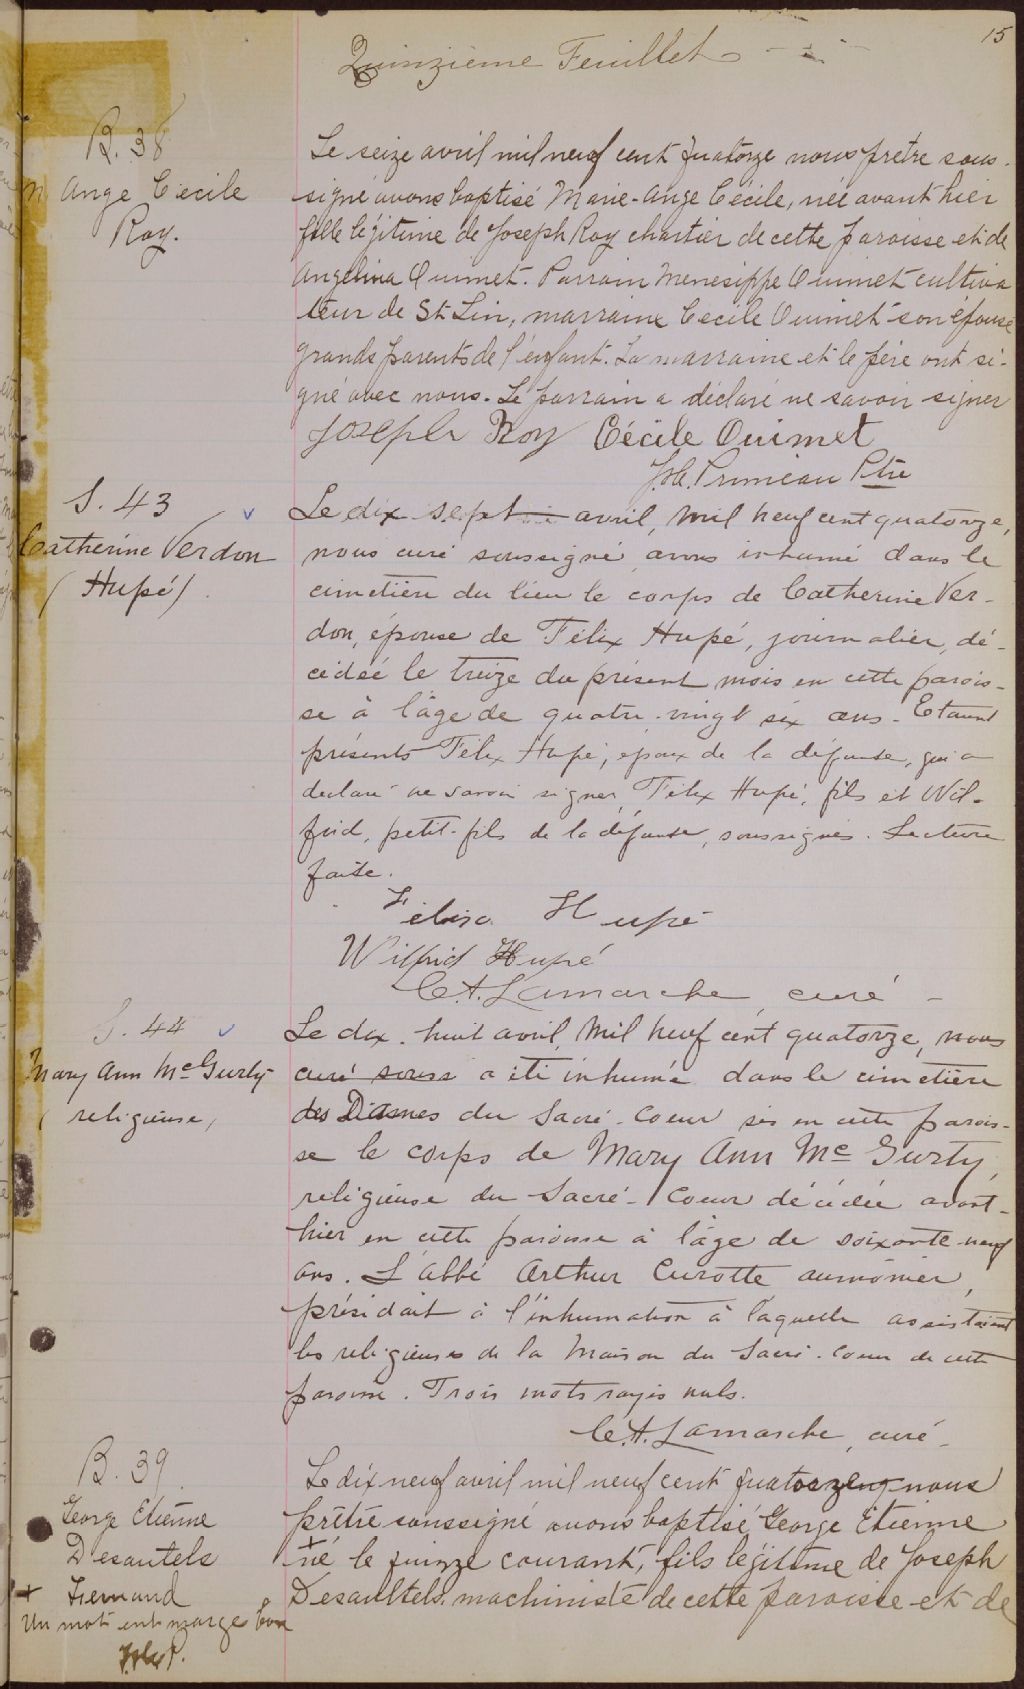 15
Quinzième Feuillet
B. 38
M. Ange Cécile
Roy.
Le seize avril mil neuf cent quatorze nous prêtre sous-
signé avons baptisé Marie-Ange Cécile, née avant hier
fille légitime de Joseph Roy chartier de cette paroisse et de
Angelina Ouimet. Parrain Menesippe Ouimet cultiva
teur de St Lin, marraine Cécile Ouimet son épouse
grands parents de l'enfant. La marraine et le père ont si-
gné avec nous. Le parrain a déclaré ne savoir signer
Joseph Roy Cécile Ouimet
Jos. Primeau Ptre
S. 43
Catherine Verdon
(Hupé)
Le dix sept avril, mil neuf cent quatorze,
nous curé soussigné avons inhumé dans le
cimetière du lieu le corps de Catherine Ver-
don, épouse de Félix Hupé, journalier, dé-
cédée le treize du présent mois en cette parois-
se à l'âge de quatre-vingt six ans. Etaient
présents Félix Hupé, époux de la défunte, qui a
déclaré ne savoir signer, Félix Hupé, fils et Wil-
frid, petit-fils de la défunte, soussignés. Lecture
faite.
Félix Hupé
Wilfrid Hupé
C.A. Lamarche, curé -
S. 44
Mary Ann Mc Gurty
(religieuse)
Le dix-huit avril, mil neuf cent quatorze, nous
curé souss a été inhumé dans le cimetière
des Dames du Sacré-Coeur sis en cette parois-
se le corps de Mary Ann Mc Gurty,
religieuse du Sacré-Coeur décédée avant-
hier en cette paroisse à l'âge de soixante-neuf
ans. L'abbé Arthur Curotte aumônier,
présidait à l'inhumation à laquelle assistaient
les religieuses de la Maison du Sacré-Coeur de cette
paroisse. Trois mots rayés nuls.
C.A. Lamarche, curé -
B. 39
George Etienne
Desautels
+ Fernand
Un mot en marge bon
J. P.
Le dix neuf avril mil neuf cent quatorze nous
prêtre soussigné avons baptisé George Etienne
+
né le quinze courant, fils légitime de Joseph
Desaultels machiniste de cette paroisse et de